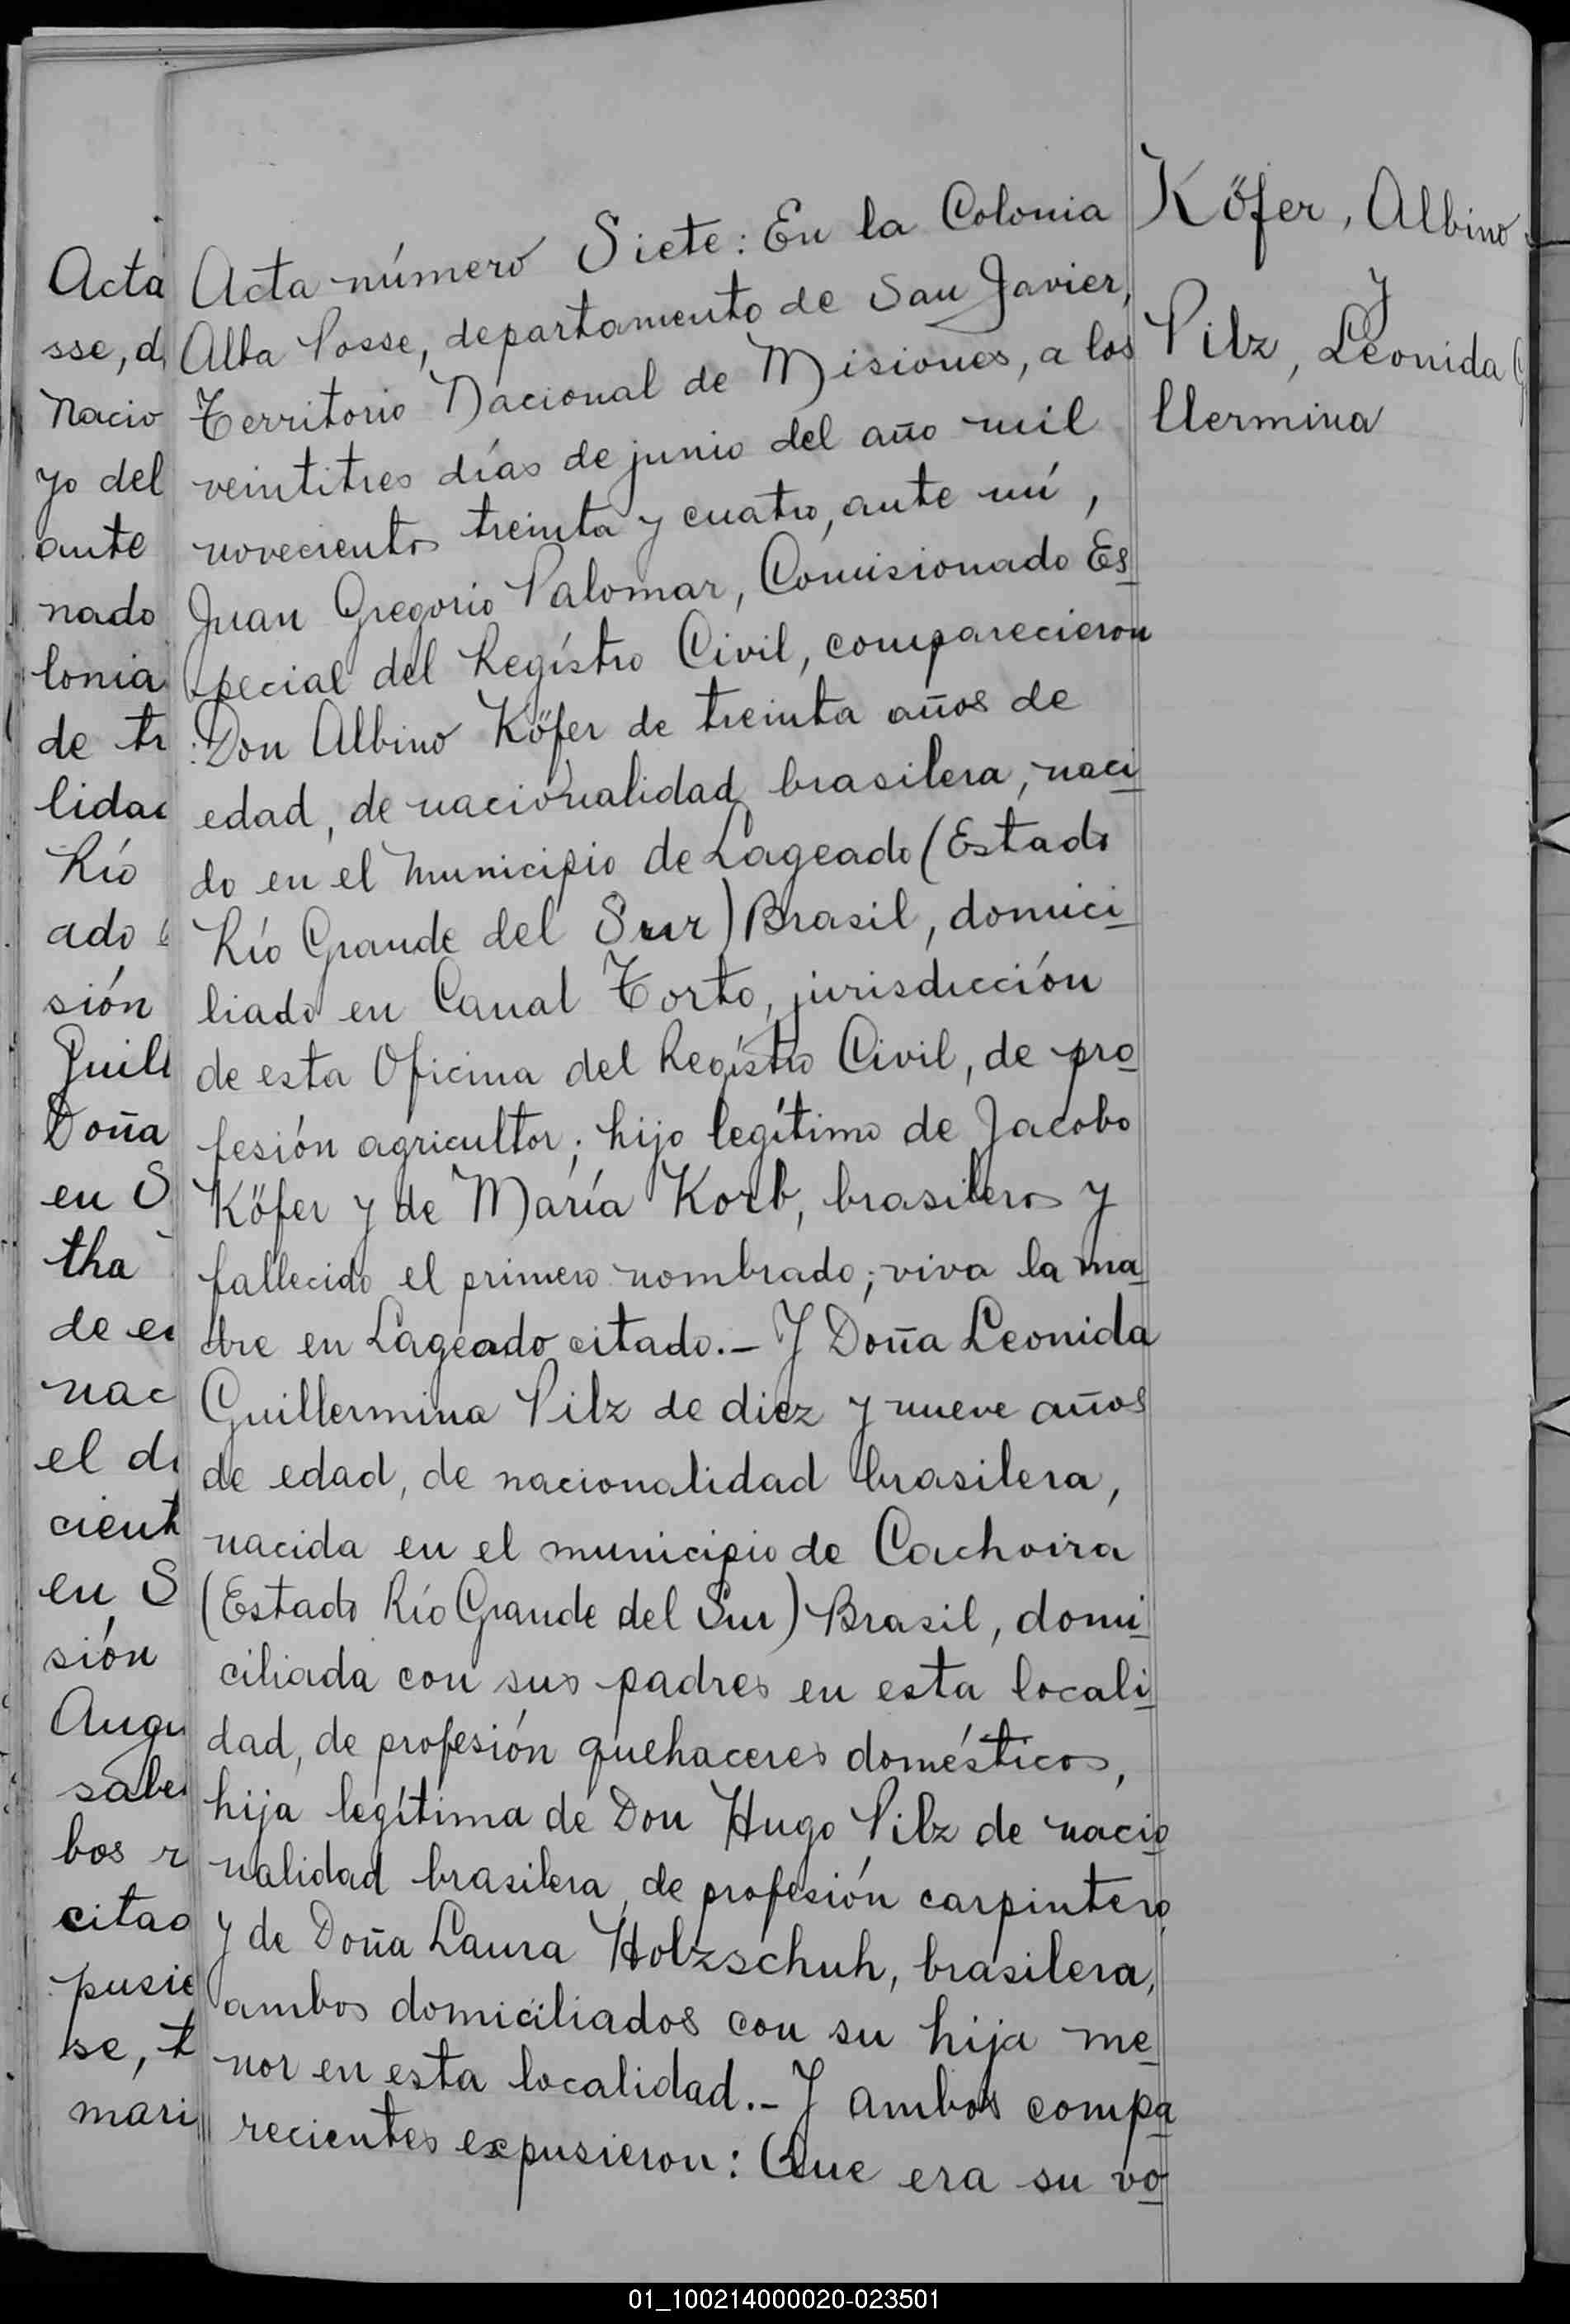 Köfer, Albino
y
Pilz, Leonida G
llermina
Acta número Siete: En la Colonia
Alba Posse, departamento de San Javier,
Territorio Nacional de Misiones, a los
veintitres días de junio del año mil
novecientos treinta y cuatro, ante mí,
Juan Gregorio Palomar, Comisionado Es
pecial del Regístro Civil, comparecieron
: Don Albino Köfer de treinta años de
edad, de nacionalidad brasilera, naci
do en el municipio de Lageado (Estado
Río Grande del Sur) Brasil, domici
liado en Canal Torto, jurisdicción
de esta Oficina del Regístro Civil, de pro
fesión agricultor; hijo legítimo de Jacobo
Köfer y de María Korb, brasileros y
fallecido el primero nombrado; viva la ma
dre en Lageado citado.- Y Doña Leonida
Guillermina Pilz de diez y nueve años
de edad, de nacionalidad brasilera,
nacida en el municipio de Cachoira
(Estado Río Grande del Sur) Brasil, domi
ciliada con sus padres en esta locali
dad, de profesión quehaceres domésticos,
hija legítima de Don Hugo Pilz de nacio
nalidad brasilera, de profesión carpintero
y de Doña Laura Holzschuh, brasilera,
ambos domiciliados con su hija me
nor en esta localidad.- Y ambos compa
recientes expusieron: Que era su vo
Acta
sse, d
Nacio
yo del
ante
nado
lonia
de tr
lidad
Río
ado
sión
Guill
Doña
en S
tha
de e
nac
el di
cient
en S
sión
Augu
sabe
bos r
citad
pusie
se, t
mari
01_100214000020-023501